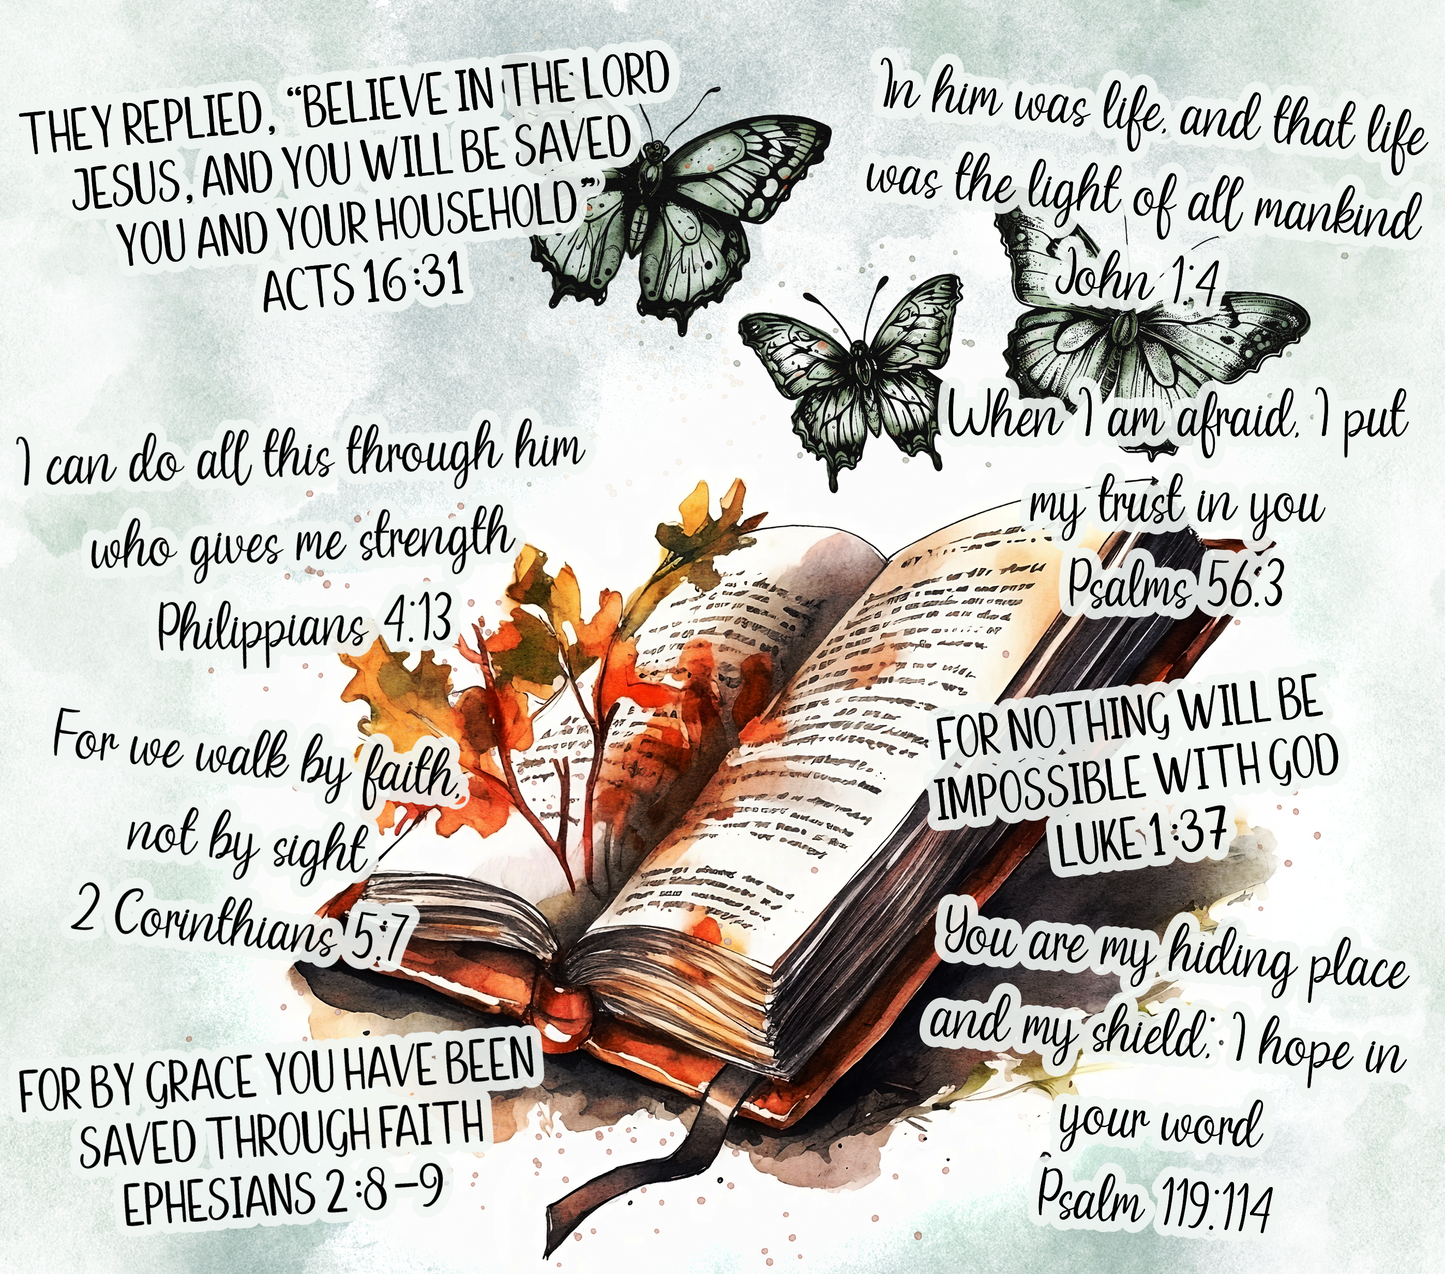 THEY REPLIED, “BELIEVE IN THE LORD
JESUS, AND YOU WILL BE SAVED
YOU AND YOUR HOUSEHOLD”
ACTS 16:31
In him was life, and that life
was the light of all mankind
John 1:4
I can do all this through him
who gives me strength
Philippians 4:13
When I am afraid, I put
my trust in you
Psalms 56:3
For we walk by faith,
not by sight
2 Corinthians 5:7
FOR NOTHING WILL BE
IMPOSSIBLE WITH GOD
LUKE 1:37
You are my hiding place
and my shield; I hope in
your word
Psalm 119:114
FOR BY GRACE YOU HAVE BEEN
SAVED THROUGH FAITH
EPHESIANS 2:8-9